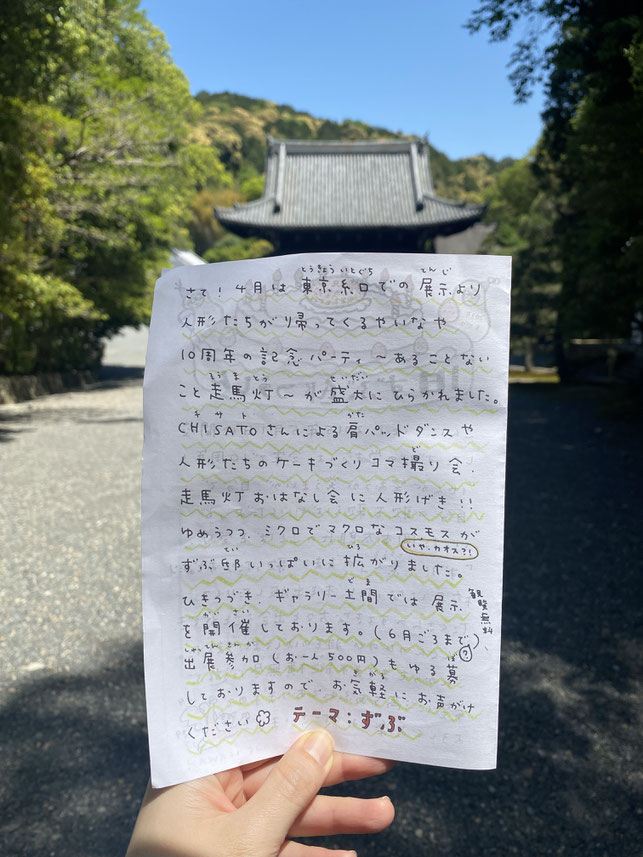 さて！4月は東京糸口での展示より
とうきょういとぐち
てんじ
人形たちがり帰ってくるやいなや
10周年の記念パーティ〜あることない
こと走馬灯〜が盛大にひらかれました。
そうまとう
せいだい
CHISATOさんによる肩パッドダンスや
キサト
かた
人形たちのケーキづくりコマ撮り会、
ど
走馬灯おはなし会に人形げき！！
ゆめうつつ、ミクロでマクロなコスモスが
いや、カオス？！
ずぶ邸いっぱいに拡がりました。
てい
ひろ
ひきつづき、ギャラリー土間では展示
どま
観覧無料
を開催しております。（6月ごろまで）
がさい
？
出展参加（お一人500円）もゆる募
しゅってんさんか
ぼ
しておりますので、お気軽にお声がけ
きがる
ください
テーマ：ずぶ